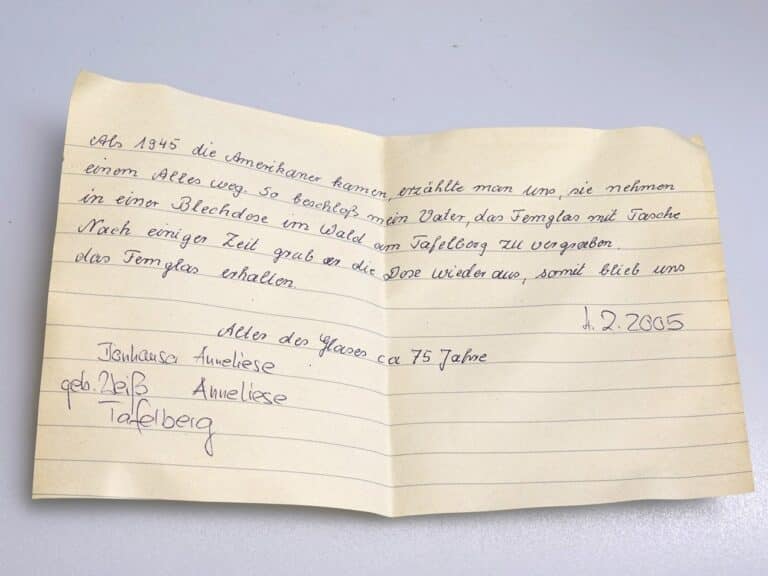 Als 1945 die Amerikaner kamen, erzählte man uns, sie nehmen
einem Alles weg. So beschloß mein Vater, das Fernglas mit Tasche
in einer Blechdose im Wald am Tafelberg zu vergraben.
Nach einiger Zeit grub er die Dose wieder aus, somit blieb uns
das Fernglas erhalten.
1.2.2005
Alter des Glases ca 75 Jahre
Anneliese
geb. Weiß Anneliese
Tafelberg